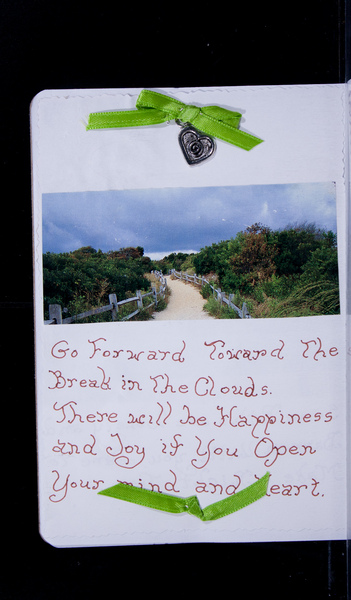 Go Forward Toward The
Break in The Clouds.
There will be Happiness
and Joy if You Open
Your mind and Heart.